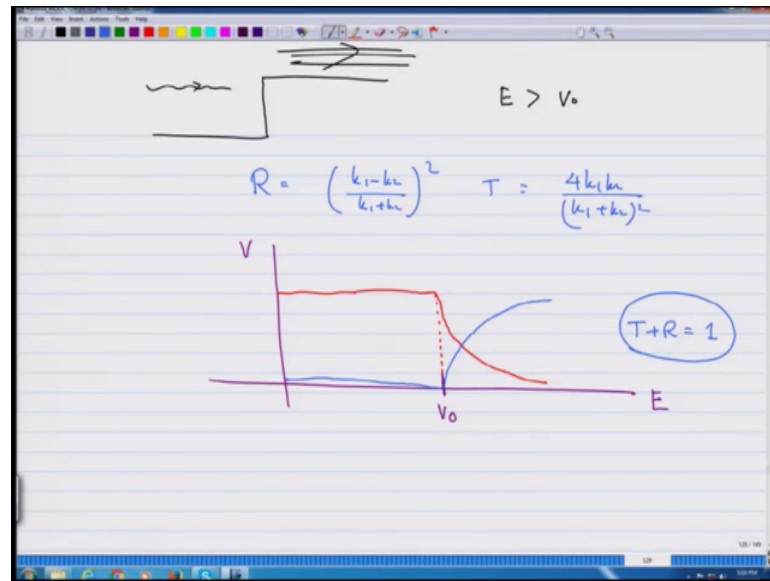 File Edit View Insert Actions Tools Help
E > V₀
R = (k₁-k₂/k₁+k₂)² T = 4k₁k₂/(k₁+k₂)²
V
T+R = 1
V₀
E
128 / 149
128
5:03 PM